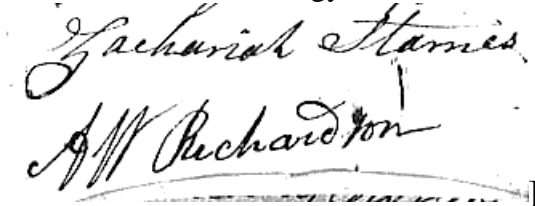 Zachariah Starnes
A W Richardson